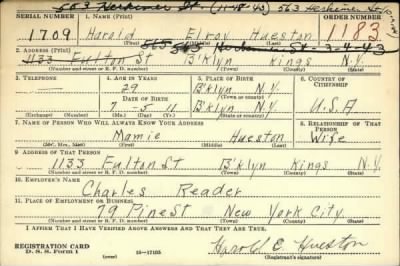 503 Herkimer St. (11-18-43) 563 Herkimer St
SERIAL NUMBER 1. NAME (Print) ORDER NUMBER
1709 Harold Elroy Hueston 1183
(First) (Middle) (Last)
565 503 Herkimer St-3-4-43
2. ADDRESS (Print)
1133 Fulton St B'klyn Kings N.Y.
(Number and street or R. F. D. number) (Town) (County) (State)
3. TELEPHONE 4. AGE IN YEARS 5. PLACE OF BIRTH 6. COUNTRY OF CITIZENSHIP
29 B'klyn N.Y.
(Town or county)
DATE OF BIRTH
7 5 11 B'klyn N.Y. U.S.A
(Exchange) (Number) (Mo.) (Day) (Yr.) (State or country)
7. NAME OF PERSON WHO WILL ALWAYS KNOW YOUR ADDRESS 8. RELATIONSHIP OF THAT PERSON
Mamie Hueston Wife
(Mr., Mrs., Miss) (First) (Middle) (Last)
9. ADDRESS OF THAT PERSON
1133 Fulton St B'klyn Kings N.Y.
(Number and street or R. F. D. number) (Town) (County) (State)
10. EMPLOYER'S NAME
Charles Reader
11. PLACE OF EMPLOYMENT OR BUSINESS
79 Pine St New York City.
(Number and street or R. F. D. number) (Town) (County) (State)
I AFFIRM THAT I HAVE VERIFIED ABOVE ANSWERS AND THAT THEY ARE TRUE.
REGISTRATION CARD
D. S. S. FORM 1 16-17105 Harold E Hueston
(Registrant's signature)